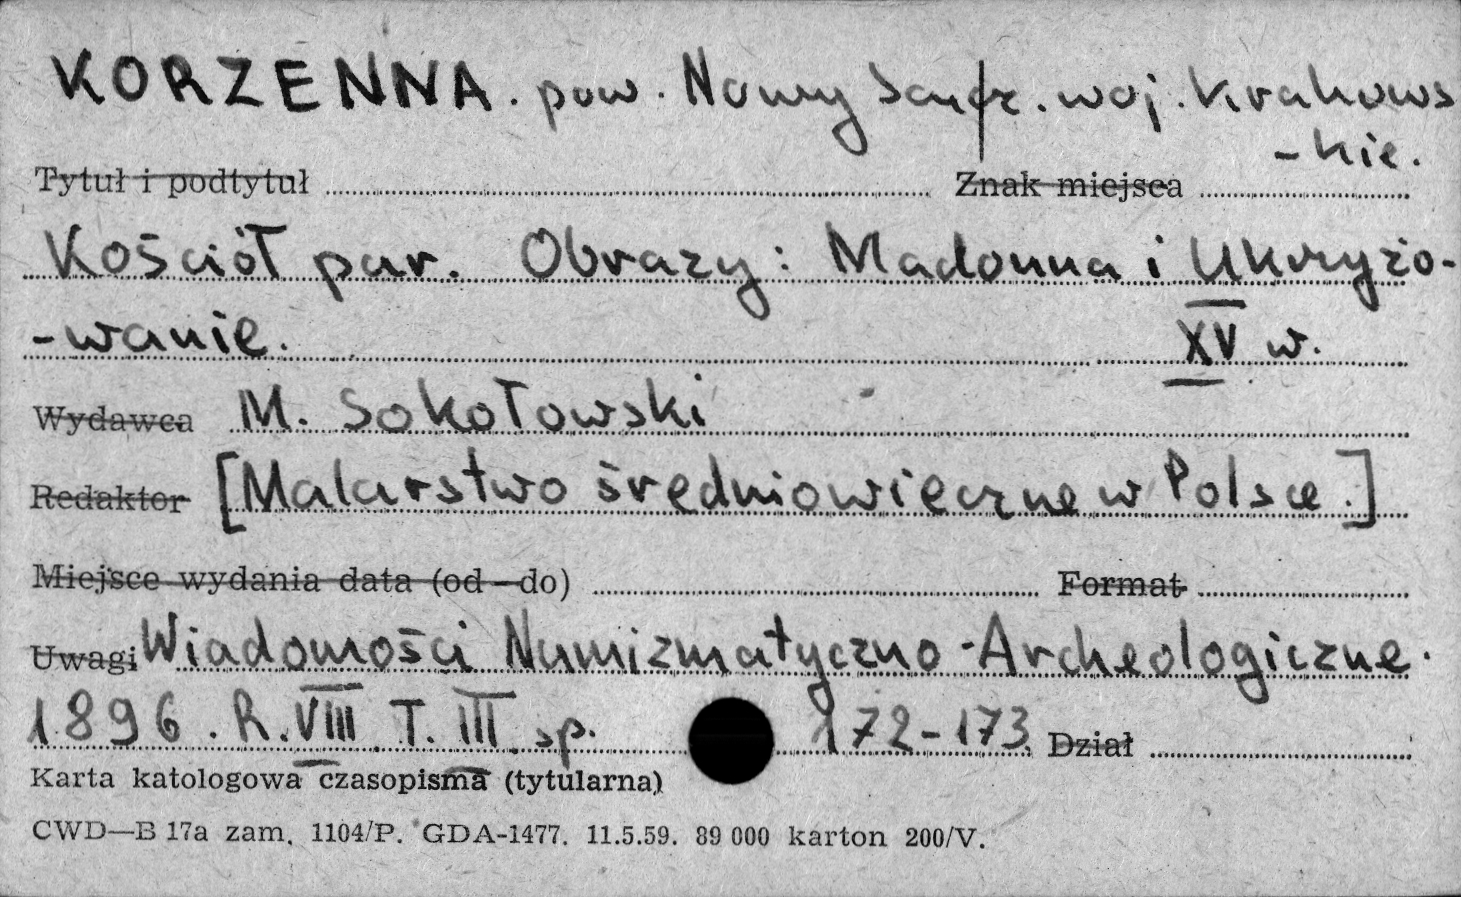 KORZENNA. pow. Nowy Sącz. woj. Krakows
-kie.
Tytuł i podtytuł Znak miejsca
Kościół par. Obrazy: Madonna i Ukrzyżo-
-wanie. XV w.
Wydawca M. Sokołowski
Redaktor [Malarstwo średniowieczne w Polsce.]
Miejsce wydania data (od—do) Format
Uwagi Wiadomości Numizmatyczno-Archeologiczne.
1896. R. VIII T. III sp. 172-173 Dział
Karta katologowa czasopisma (tytularna)
CWD—B 17a zam. 1104/P. GDA-1477. 11.5.59. 89 000 karton 200/V.